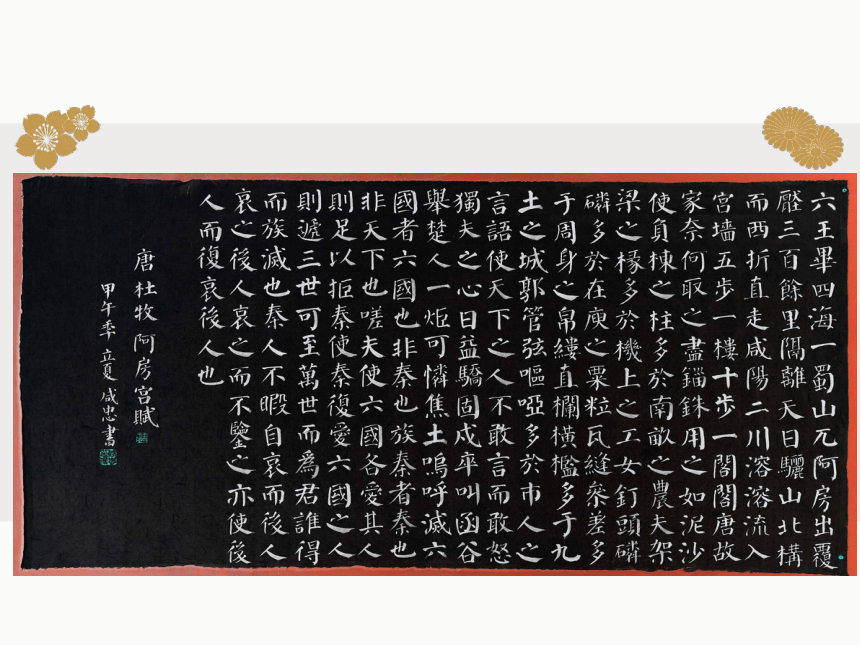 六王畢四海一蜀山兀阿房出覆
壓三百餘里隔離天日驪山北構
而西折直走咸陽二川溶溶流入
宮墻五步一樓十步一閣閣唐故
家奈何取之盡錙銖用之如泥沙
使負棟之柱多於南畝之農夫架
梁之椽多於機上之工女釘頭磷
磷多於在庾之粟粒瓦縫參差多
于周身之帛縷直欄橫檻多于九
土之城郭管弦嘔啞多於市人之
言語使天下之人不敢言而敢怒
獨夫之心日益驕固戍卒叫函谷
舉楚人一炬可憐焦土嗚呼滅六
國者六國也非秦也族秦者秦也
非天下也嗟夫使六國各愛其人
則足以拒秦使秦復愛六國之人
則遞三世可至萬世而爲君誰得
而族滅也秦人不暇自哀而後人
哀之後人哀之而不鑒之亦使後
人而復哀後人也
唐杜牧阿房宮賦
甲午季立夏咸忠書